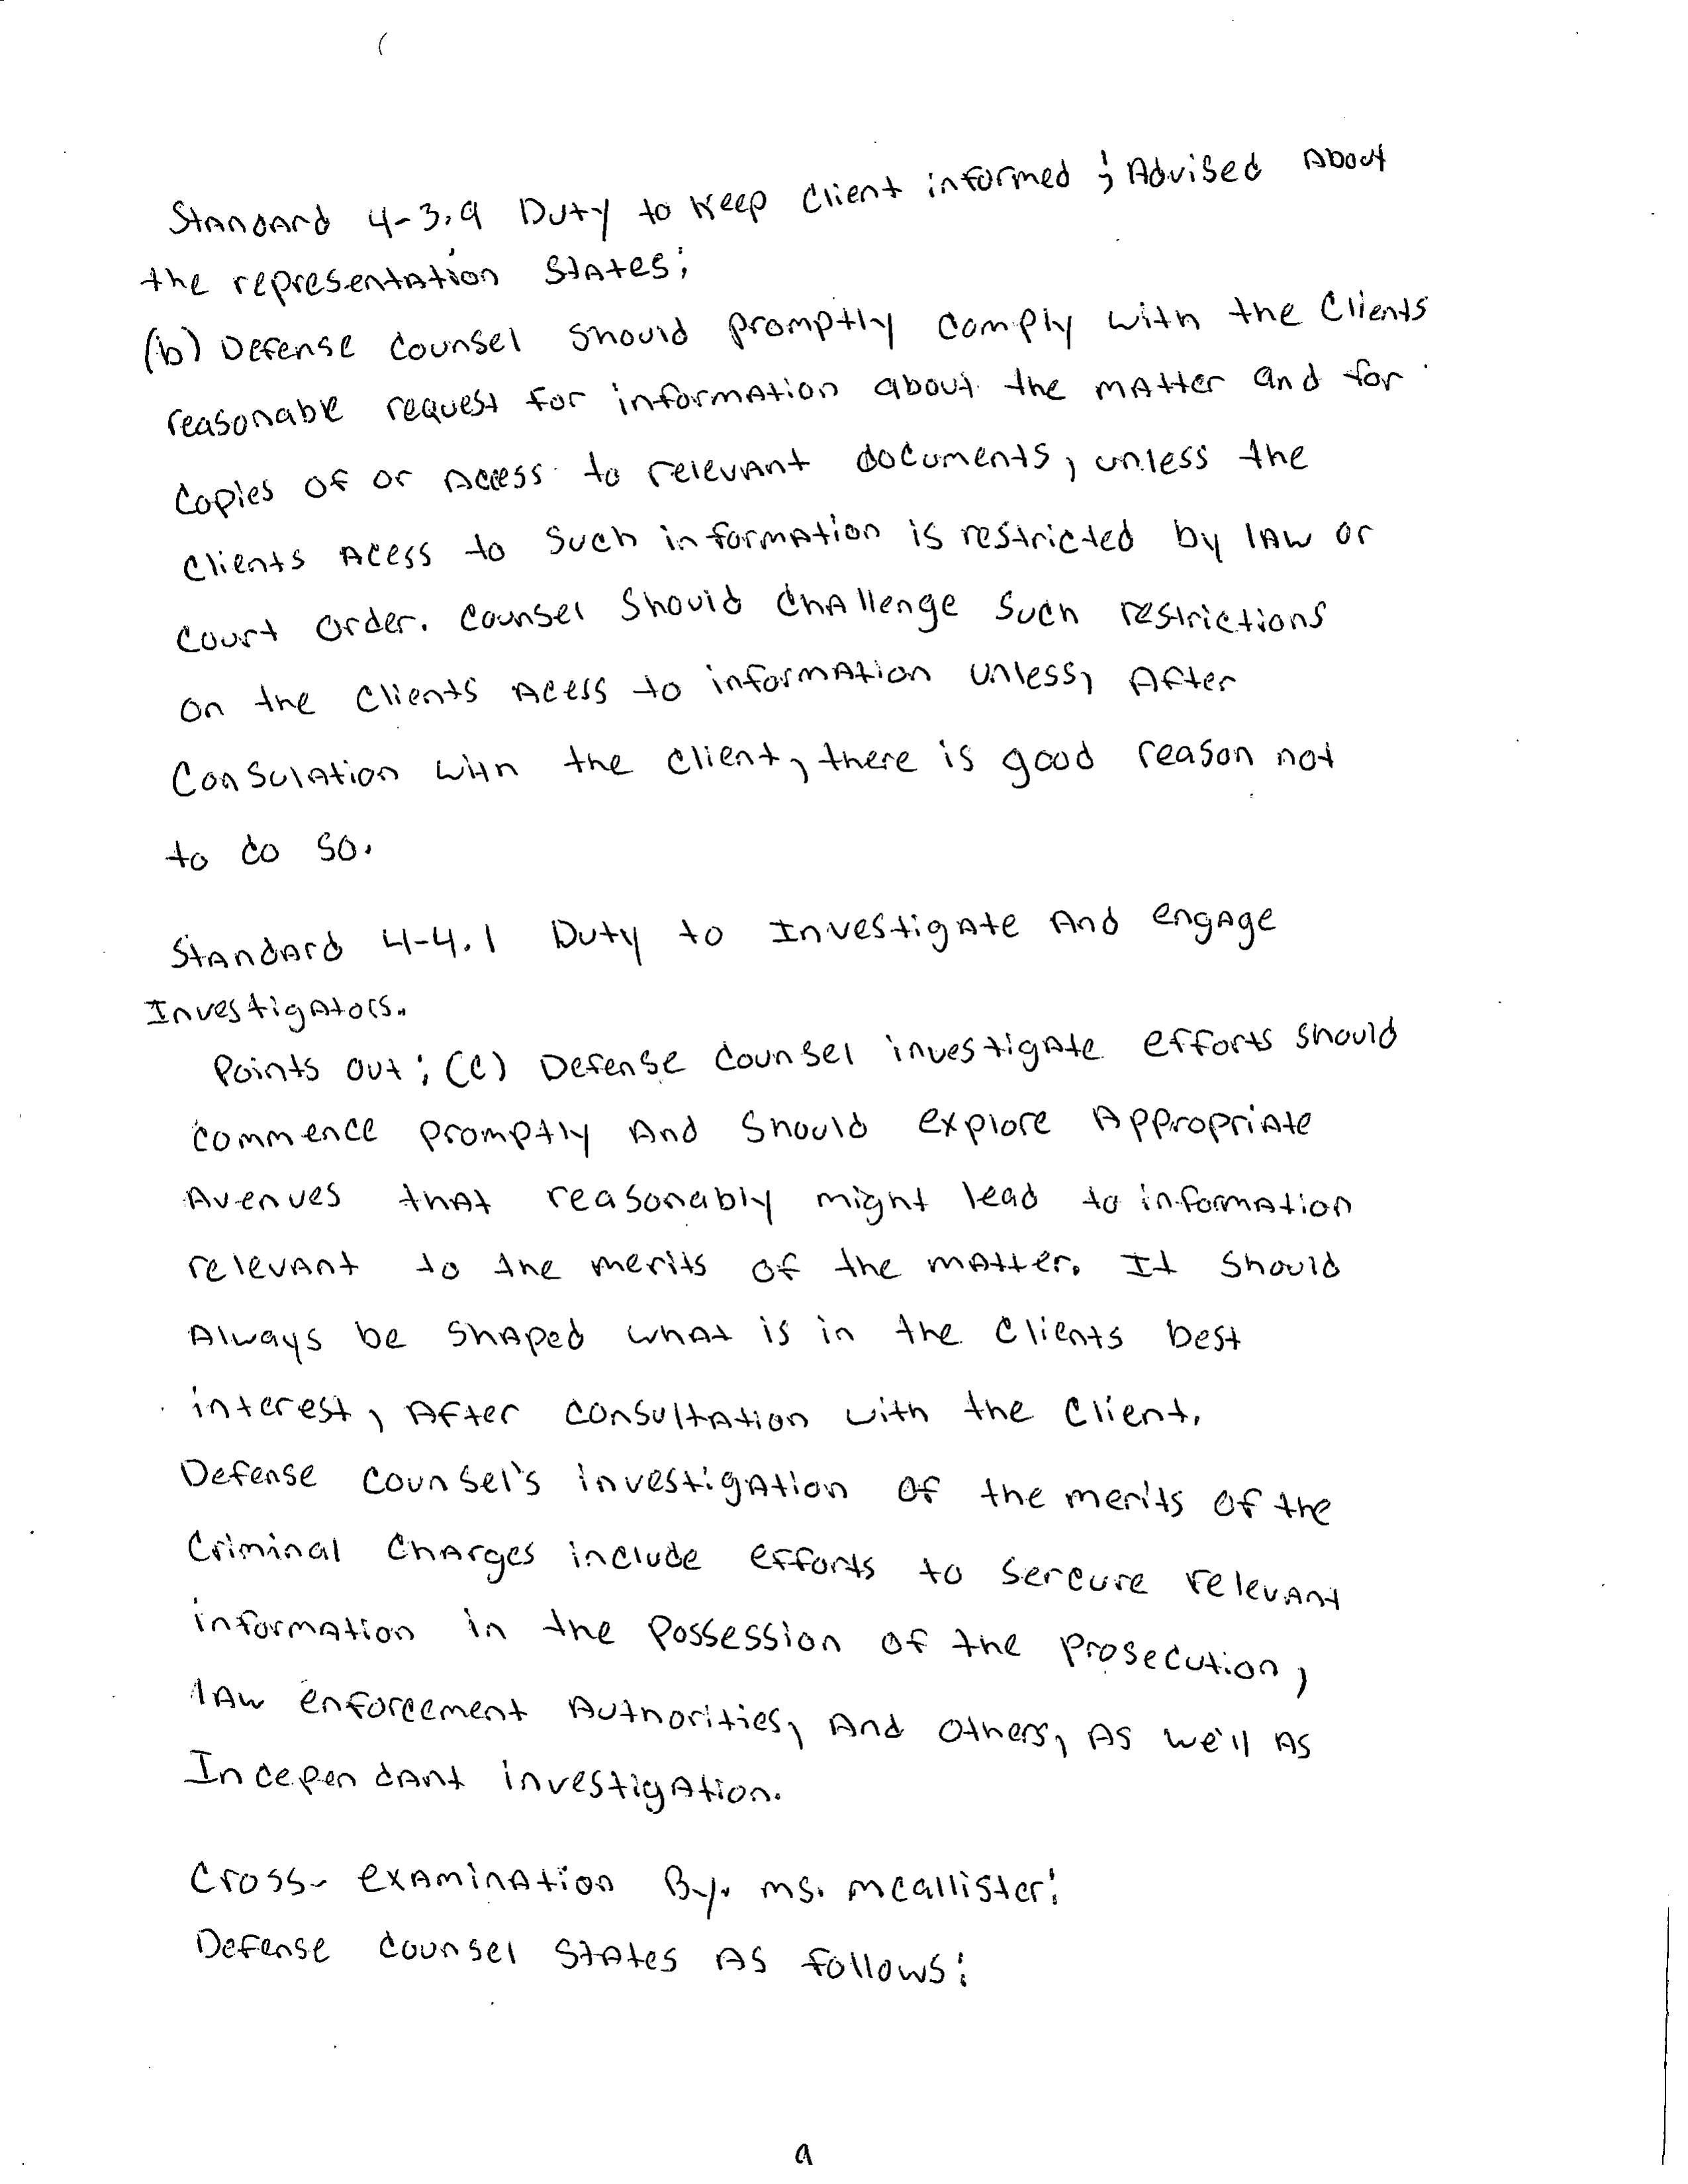 Standard 4-3.9 Duty to Keep Client informed ; Advised About
the representation States;
(b) Defense Counsel Should promptly comply with the Clients
reasonable request for information about the matter and for
Copies of or Access to relevant documents, unless the
Clients Acess to Such information is restricted by law or
Court Order. Counsel Should Challenge Such restrictions
on the Clients Acess to information unless, After
Consulation with the Client, there is good reason not
to do so.
Standard 4-4.1 Duty to Investigate And engage
Investigators.
Points out; (C) Defense Counsel investigate efforts should
commence promptly And Should explore Appropriate
Avenues that reasonably might lead to information
relevant to the merits of the matter. It Should
Always be Shaped what is in the Clients best
interest, After consultation with the Client.
Defense Counsel's investigation of the merits of the
Criminal Charges include efforts to Sercure relevant
information in the Possession of the Prosecution,
law enforcement Authorities, And Others, As we'll As
Independant investigation.
Cross- examination By. ms. mcallister:
Defense Counsel States As follows:
9